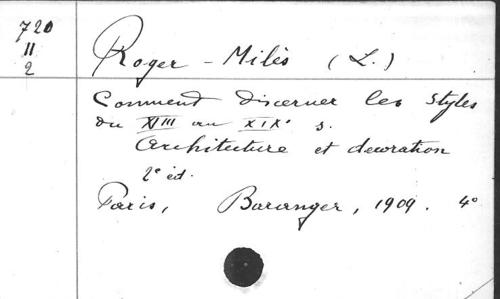 720
II
2
Roger - Milès (L.)
Comment discerner les styles
du XVIII au XIXe s.
Architecture et decoration
2e ed.
Paris, Baranger, 1909. 4o